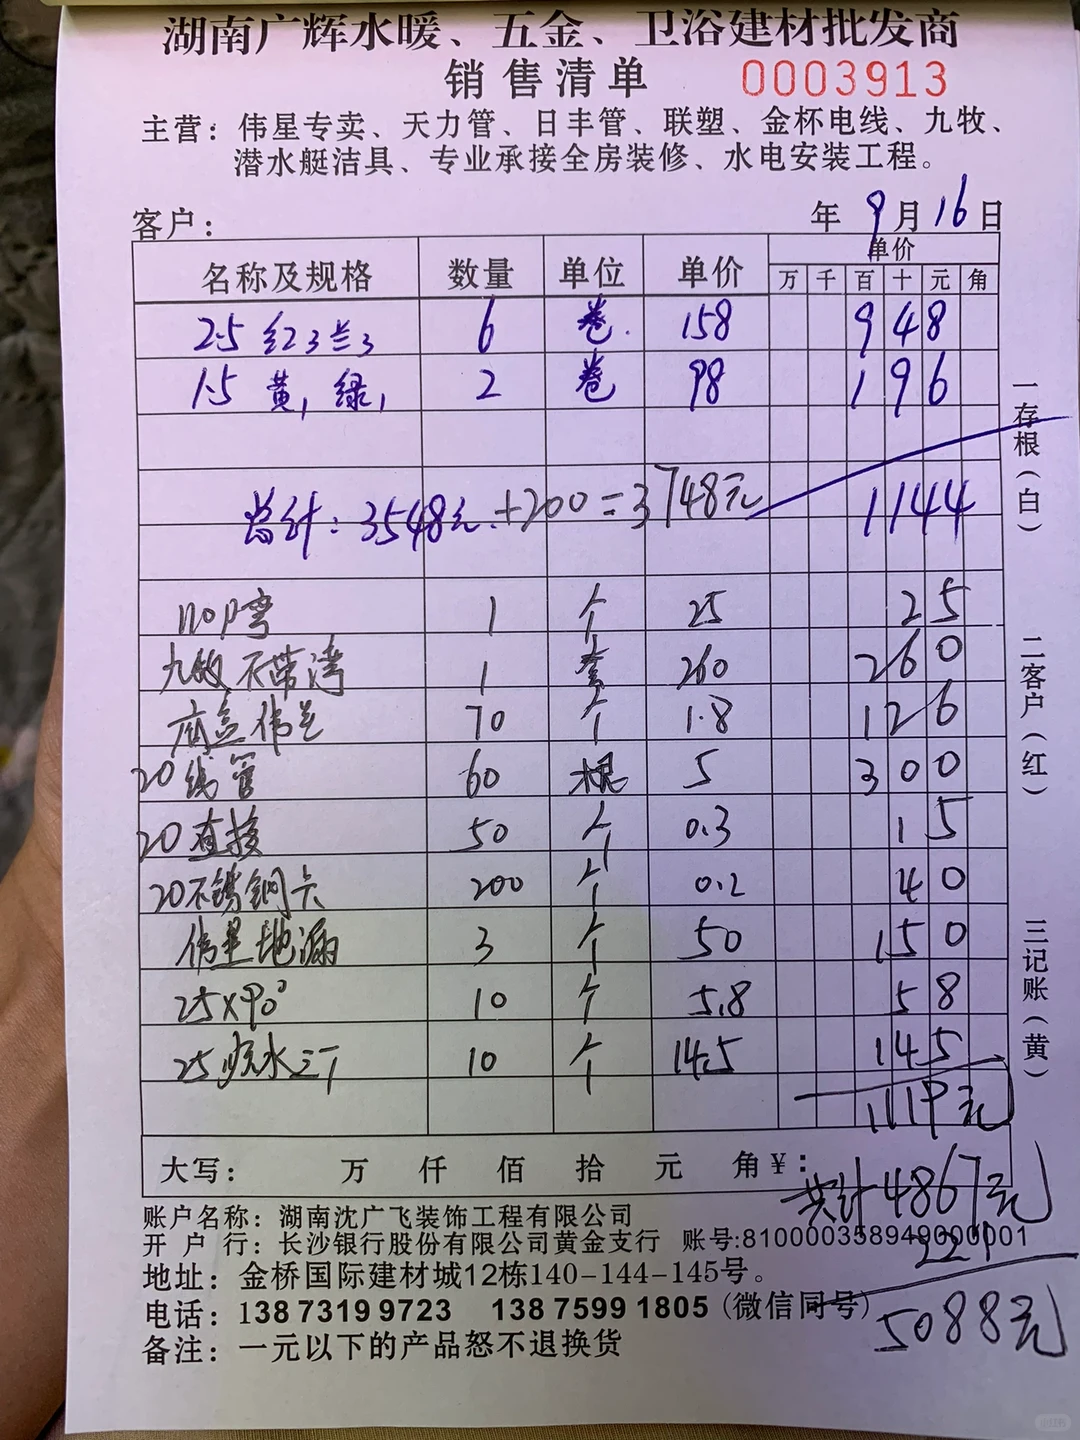 湖南广辉水暖、五金、卫浴建材批发商
销售清单 0003913
主营：伟星专卖、天力管、日丰管、联塑、金杯电线、九牧、
潜水艇洁具、专业承接全房装修、水电安装工程。
客户： 年 9月16日
名称及规格 数量 单位 单价 单价
万 千 百 十 元 角
2.5 红3兰3 6 卷 158 948
1.5 黄1 绿1 2 卷 98 196
总计：3548元+200=3748元 1144
110P弯 1 个 25 25
九牧不带湾 1 套 260 260
底盒伟星 70 个 1.8 126
20线管 60 根 5 300
20直接 50 个 0.3 15
20不锈钢卡 200 个 0.2 40
伟星地漏 3 个 50 150
25×90° 10 个 5.8 58
25顺水三丁 10 个 14.5 145
1119元
大写： 万 仟 佰 拾 元 角 ¥：
共计4867元
账户名称：湖南沈广飞装饰工程有限公司
开户行：长沙银行股份有限公司黄金支行 账号:810000358949000001
221
地址：金桥国际建材城12栋140-144-145号。
电话：138 7319 9723 138 7599 1805 (微信同号)
5088元
备注：一元以下的产品怒不退换货
一存根（白）
二客户（红）
三记账（黄）